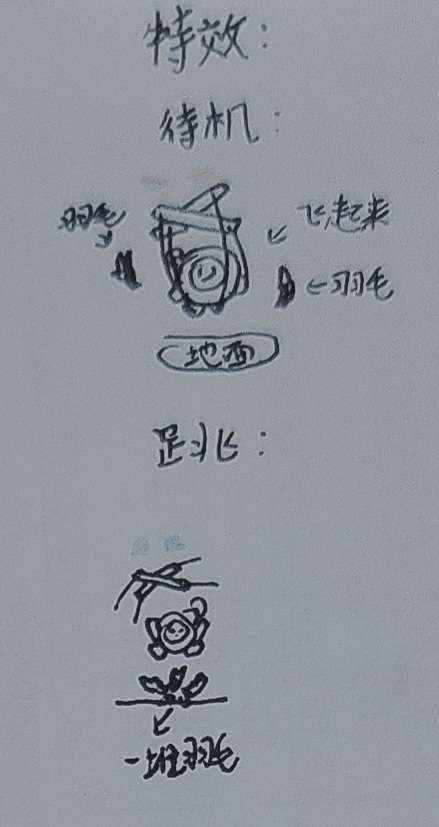 特效：
待机：
羽毛
飞起来
羽毛
地面
跳：
一堆羽毛